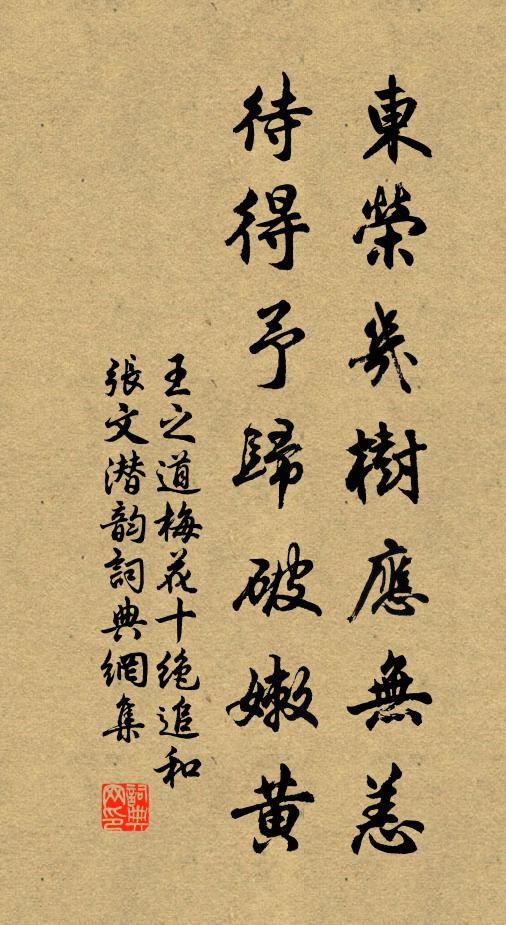 東榮幾樹應無恙
待得予歸破嫩黃
王之道梅花十絶追和
張文潜韵詞典網集
詞典網印